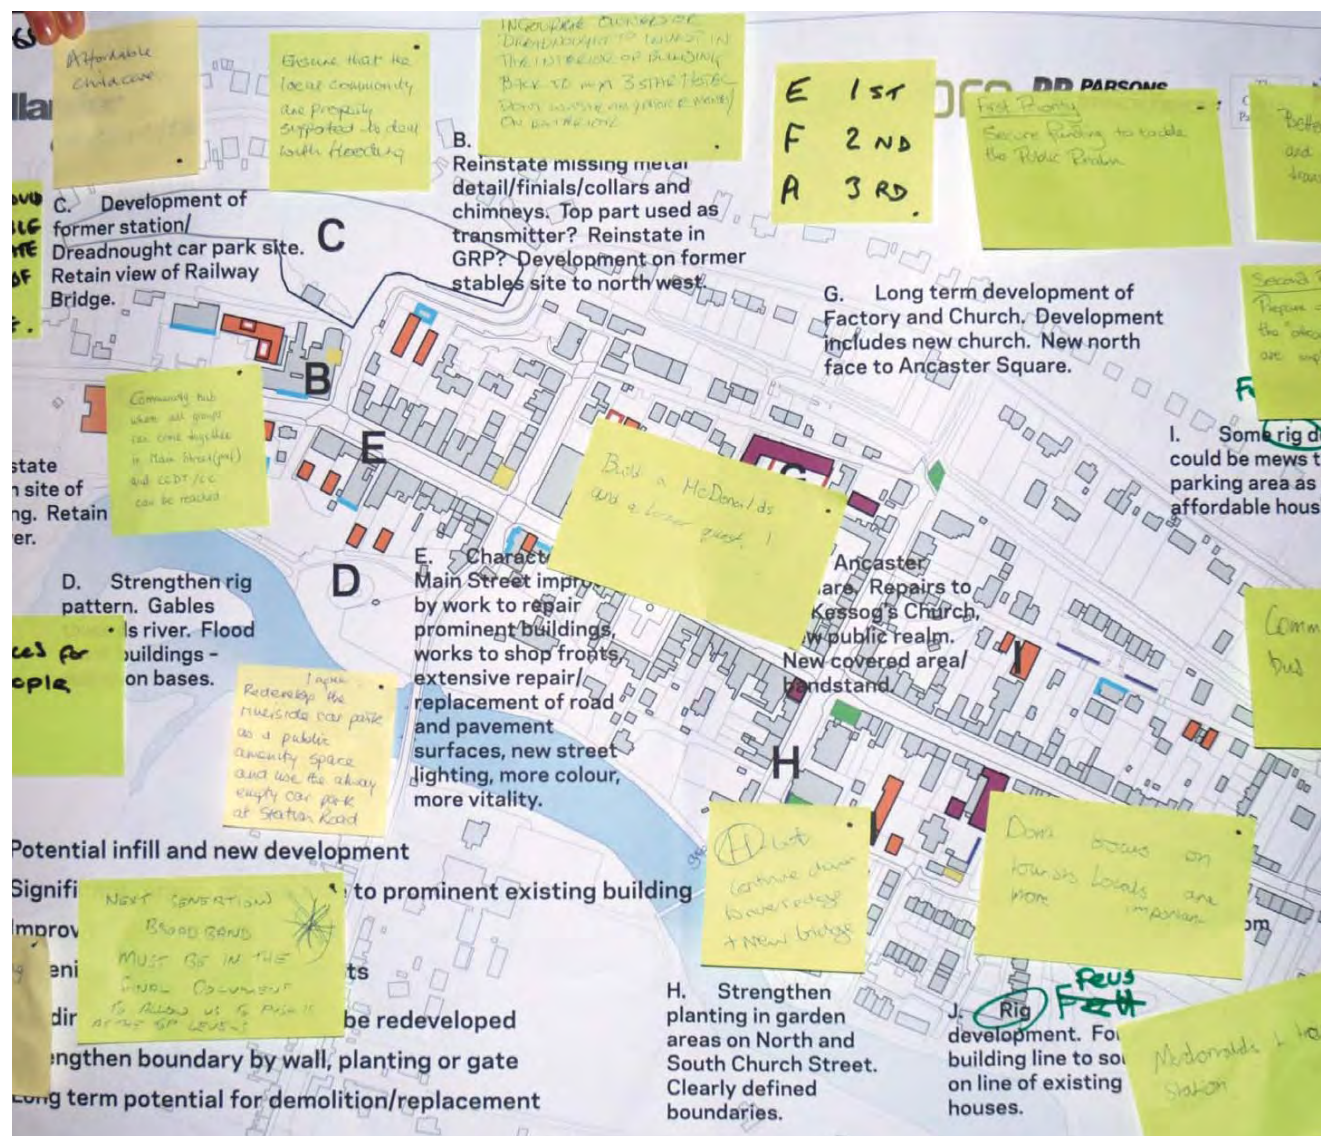 Affordable
childcare
Ensure that the
local community
are properly
supported to deal
with flooding
OWNERS OR
DREADNOUGHT TO INVEST IN
THE INTERIOR OF BUILDING
BACK TO 3 STAR HOTEL
DON'T WASTE MONEY
ON EXTERIOR
E 1ST
F 2ND
A 3RD
PARSONS
First Priority
Secure funding to tackle
the Public Realm
and
Second
Prepare
the
are
C. Development of
former station/
Dreadnought car park site.
Retain view of Railway
Bridge.
B.
Reinstate missing metal
detail/finials/collars and
chimneys. Top part used as
transmitter? Reinstate in
GRP? Development on former
stables site to north west.
C
G. Long term development of
Factory and Church. Development
includes new church. New north
face to Ancaster Square.
B
E
D
I
H
Community hub
where all groups
can come together
in Main Street
and CCDT/CC
can be reached
Build a McDonalds
and a
I. Some rig
could be mews
parking area as
affordable
state
site of
Retain
D. Strengthen rig
pattern. Gables
river. Flood
buildings –
on bases.
for
E.
Main Street
by work to repair
prominent buildings,
works to shop fronts,
extensive repair/
replacement of road
and pavement
surfaces, new street
lighting, more colour,
more vitality.
Ancaster
Repairs to
Kessog's Church,
public realm.
New covered area/
bandstand.
I agree
Redevelop the
riverside car park
as a public
amenity space
and use the
empty car park
at Station Road
Potential infill and new development
to prominent existing building
be redeveloped
boundary by wall, planting or gate
Long term potential for demolition/replacement
NEXT GENERATION
BROADBAND
MUST BE IN THE
FINAL DOCUMENT
TO ALLOW US TO PUSH IT
AT THE SP LEVELS
H but
Continue down
+ New bridge
Dont focus on
tourists locals are
more important
H. Strengthen
planting in garden
areas on North and
South Church Street.
Clearly defined
boundaries.
Feus
J. Rig
development.
building line to
on line of existing
houses.
Mcdonalds +
Station